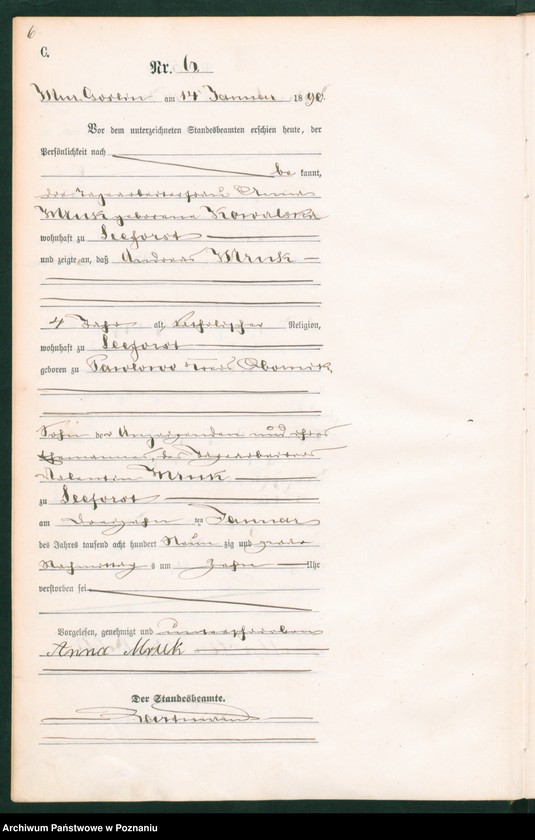 6
C.
Nr. 6
Gorlin am 14 Januar 1890.
Vor dem unterzeichneten Standesbeamten erschien heute, der
Persönlichkeit nach
be kannt,
die Tagearbeiterfrau Anna
Mruk geborene Kowalska
wohnhaft zu Seeforst
und zeigte an, daß Andreas Mruk
4 Jahre alt, katholischer Religion,
wohnhaft zu Seeforst
geboren zu Pawlowo Kreis Obornik
Sohn der Anzeigenden und ihres
Ehemannes, des Tagearbeiters
Valentin Mruk
zu Seeforst
am dreizehn ten Januar
des Jahres tausend acht hundert Neun zig und zwar
Nachmittag s um Zehn Uhr
verstorben sei
Vorgelesen, genehmigt und unterschrieben
Anna Mruk
Der Standesbeamte.
Archiwum Państwowe w Poznaniu